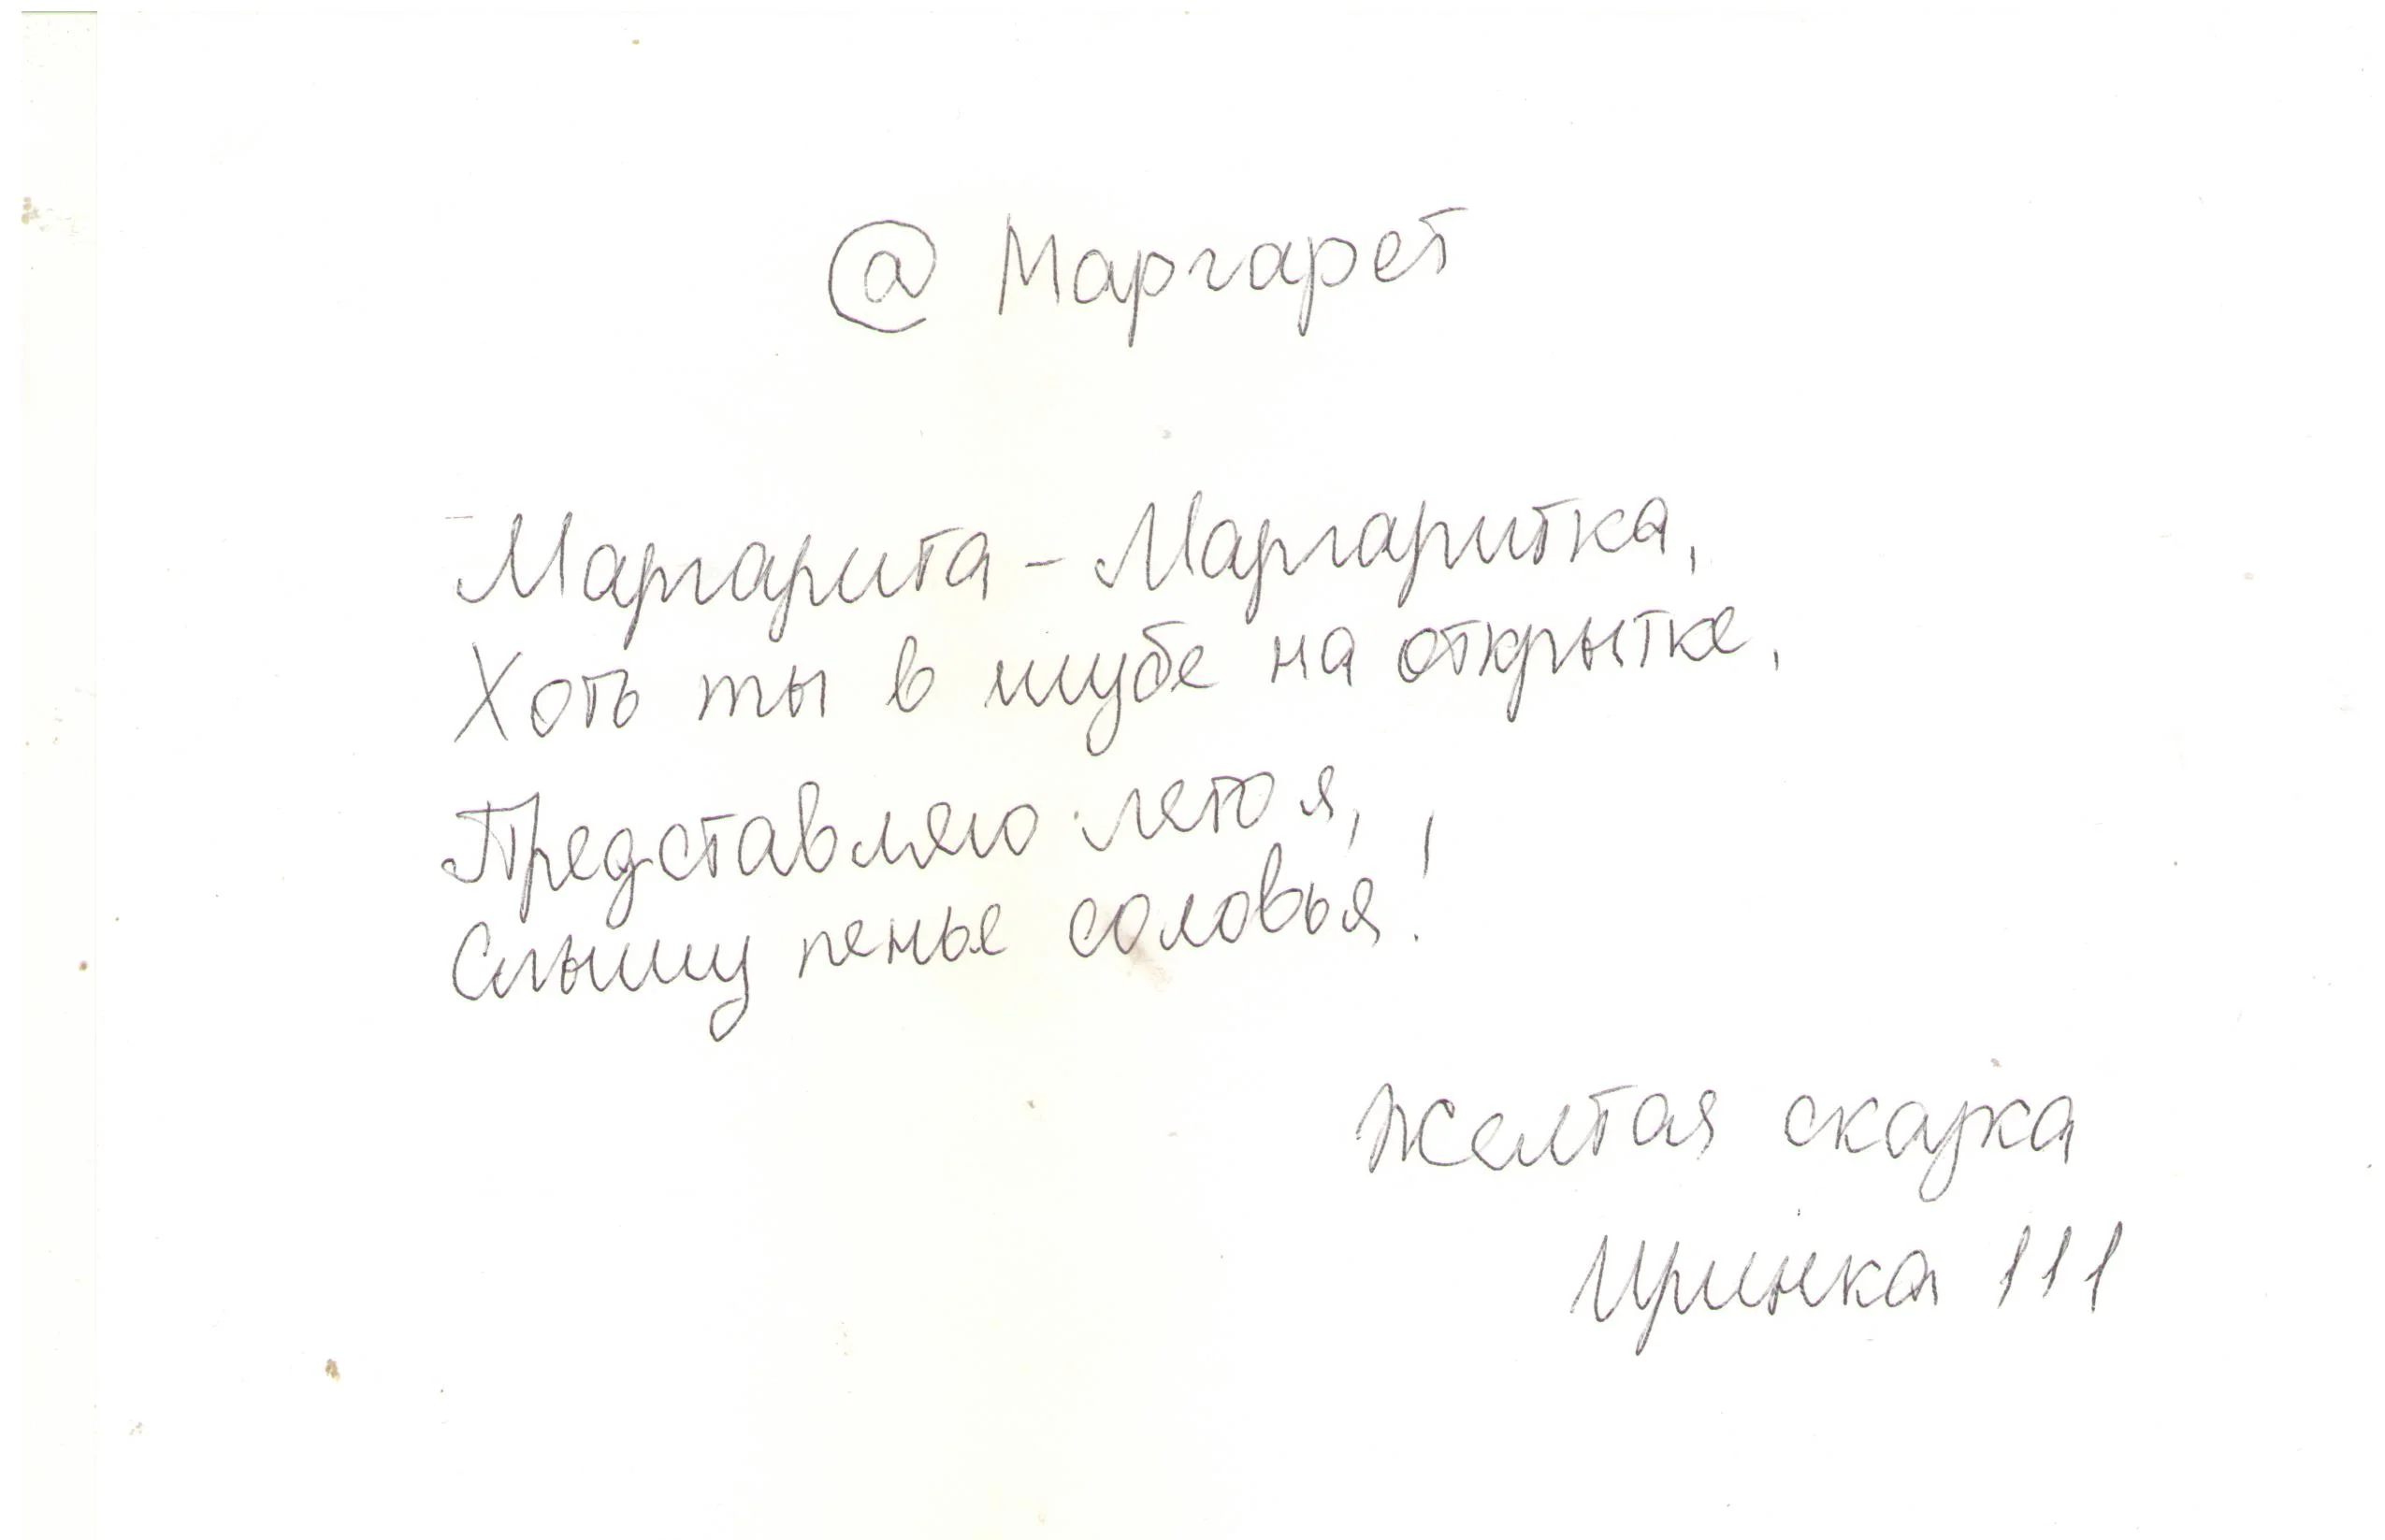 @ Маргарет
Маргарита - Маргаритка,
Хоть ты в шубе на открытке,
Представляю лето я,
Слышу пенье соловья!
Желтая сказка
Иринка 111